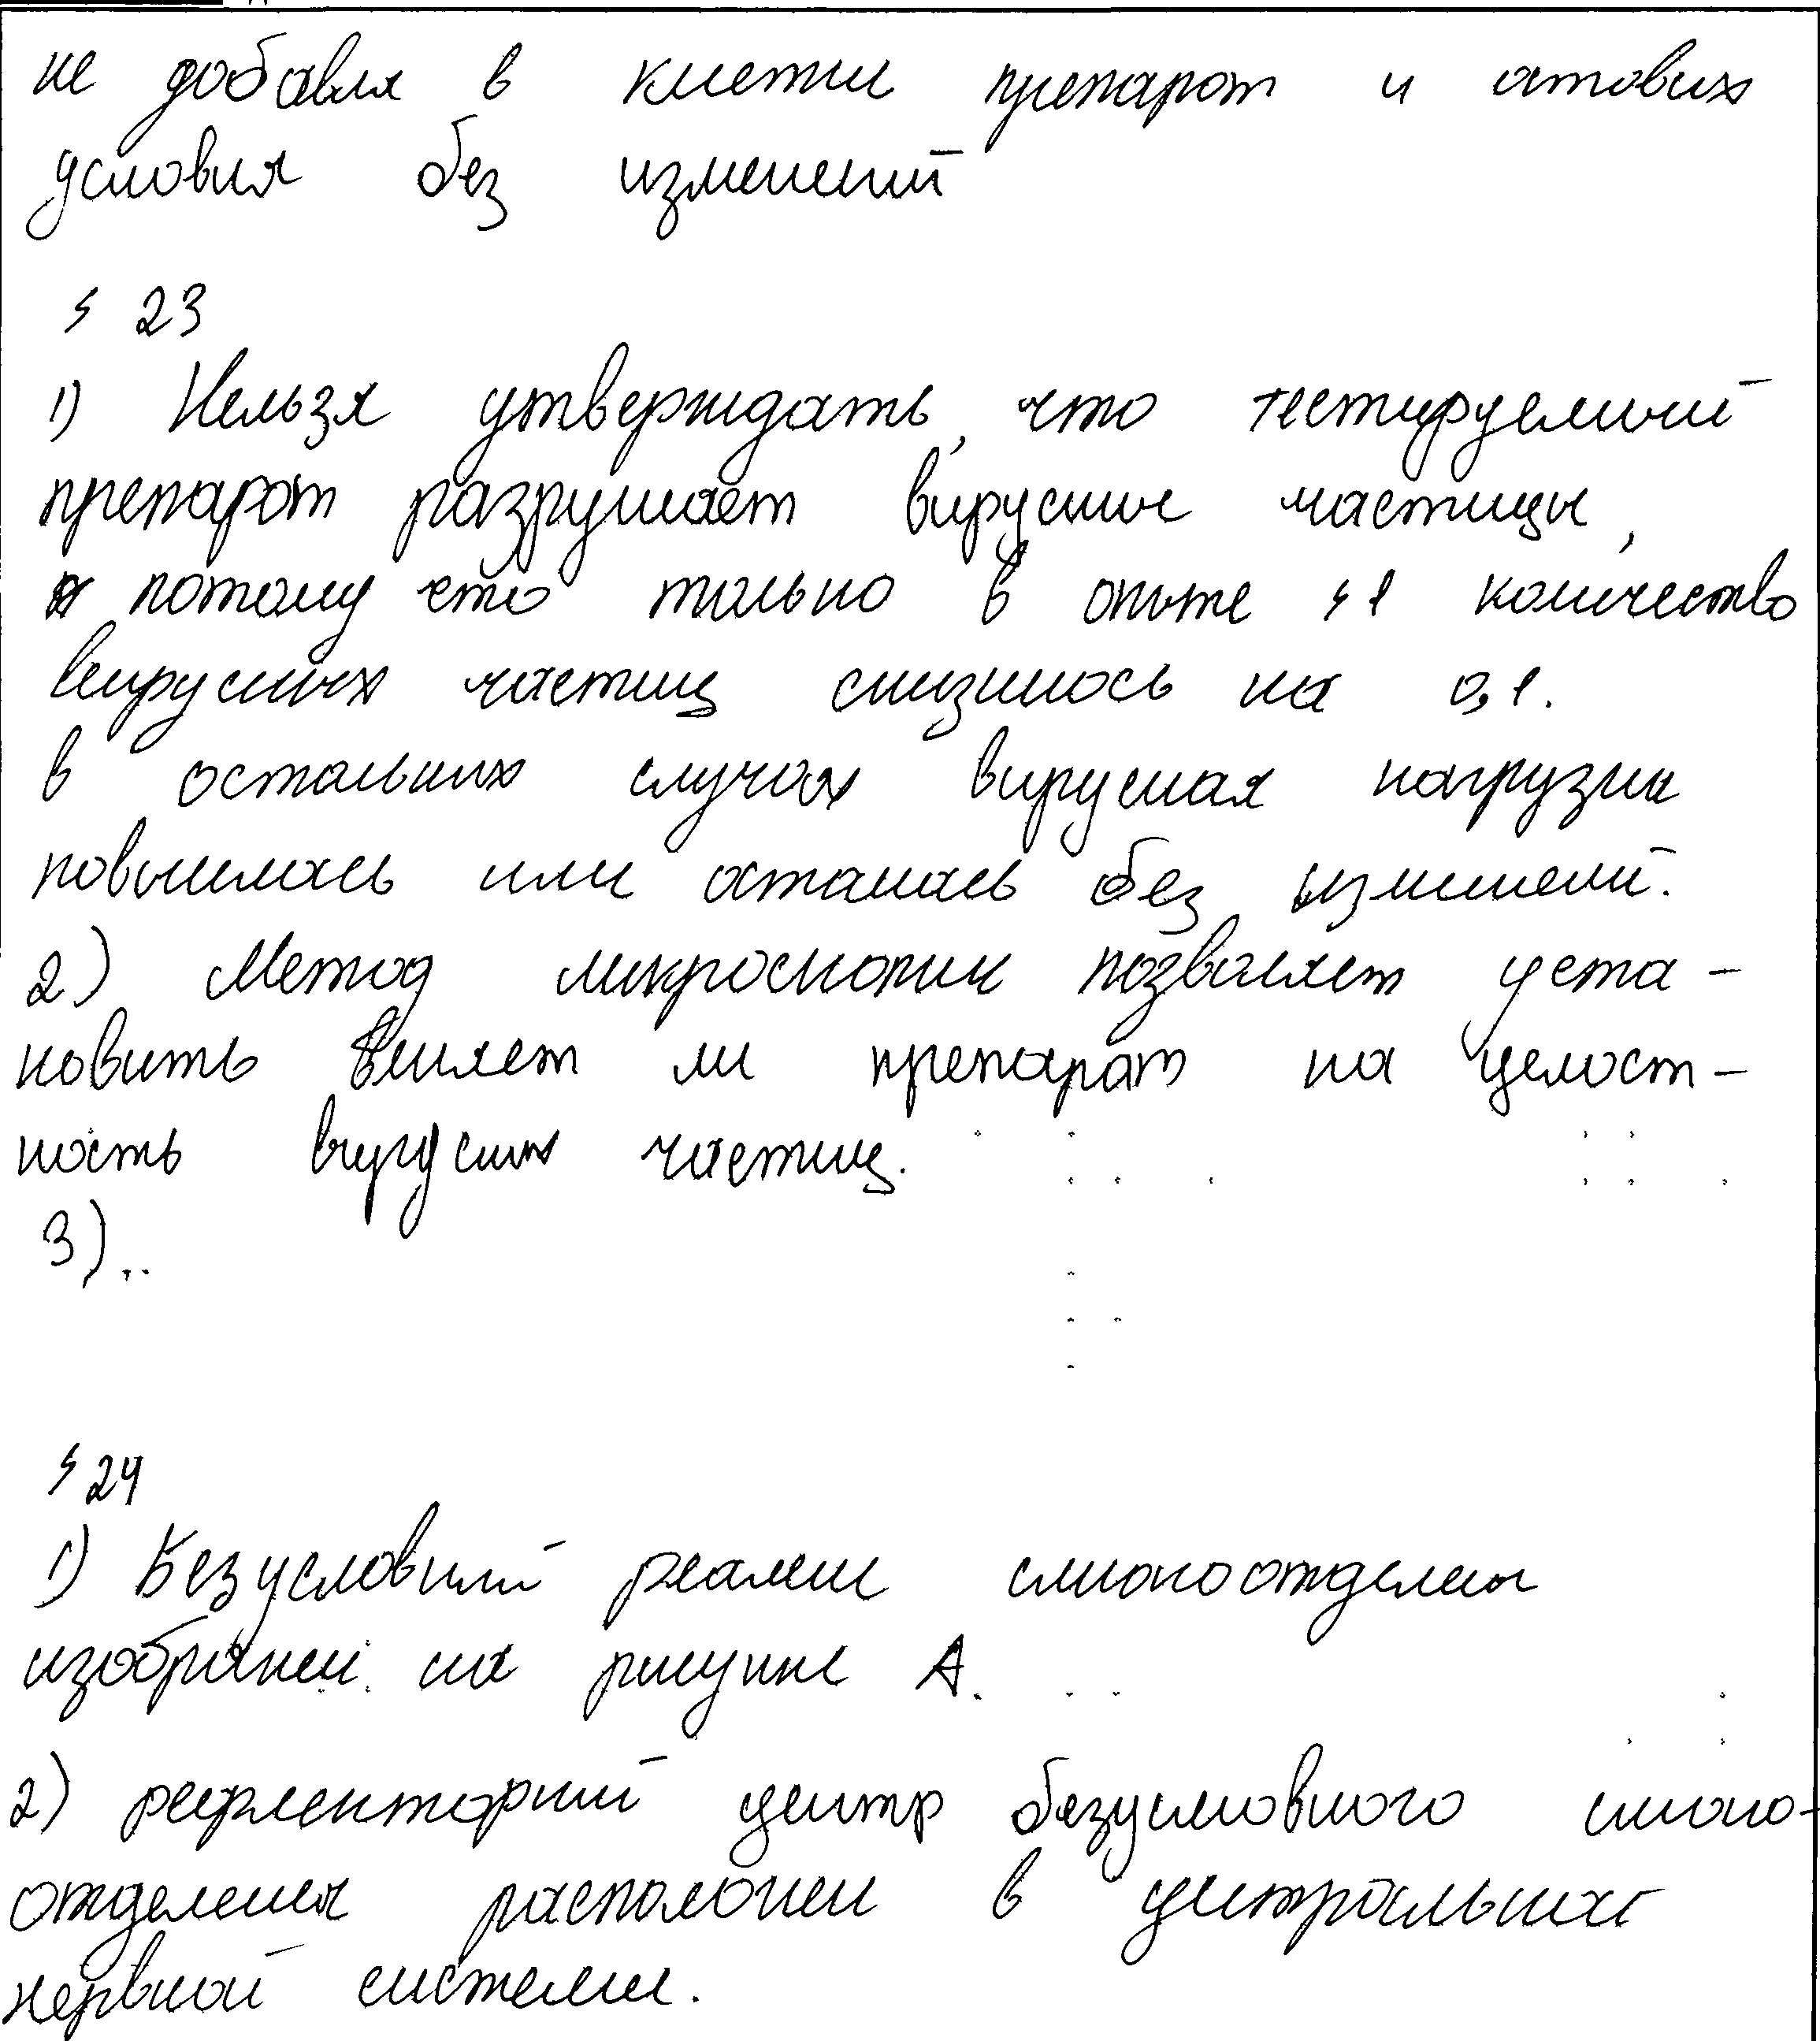 не добавля в клетки препарат и
условия без изменений
№ 23
1) Нельзя утверждать, что тестируемый
препарат разрушает вирусные частицы,
потому что только в опыте № 1 количество
вирусных частиц снизилось на 0,1.
в остальных случах вирусная нагрузка
повысилась или осталась без изменений.
2) Метод микроскопии позволяет уста-
новить влияет ли препарат на целост-
ность вирусных частиц.
3)..
№ 24
1) Безусловный слюноотделения
изображен на рисунке А.
2) рефлекторный центр безусловного слюно-
отделения расположен в центральной
нервной системе.